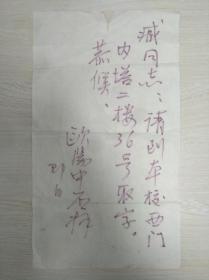 臧同志：请到本校西门
内塔二楼36号取字。
恭候、
欧阳中石 拜